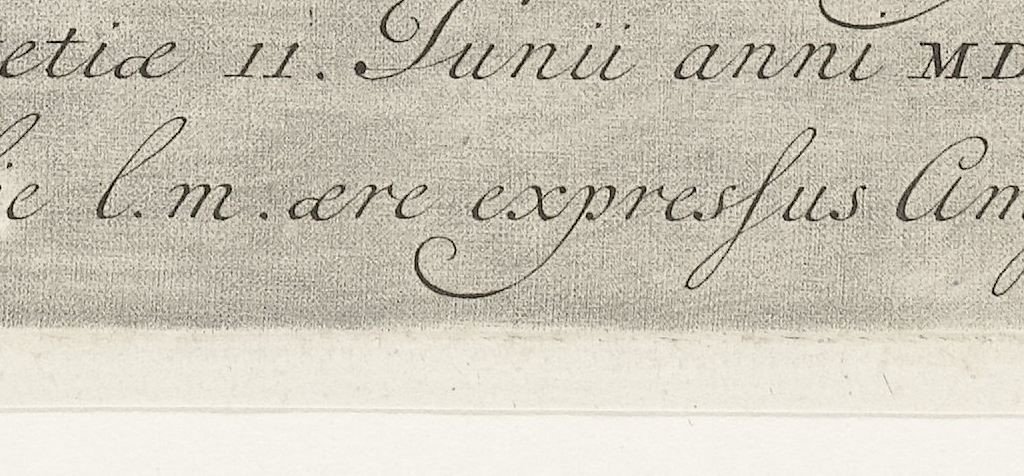 etiæ 11. Junii anni MD
ie l.m. ære expressus Am